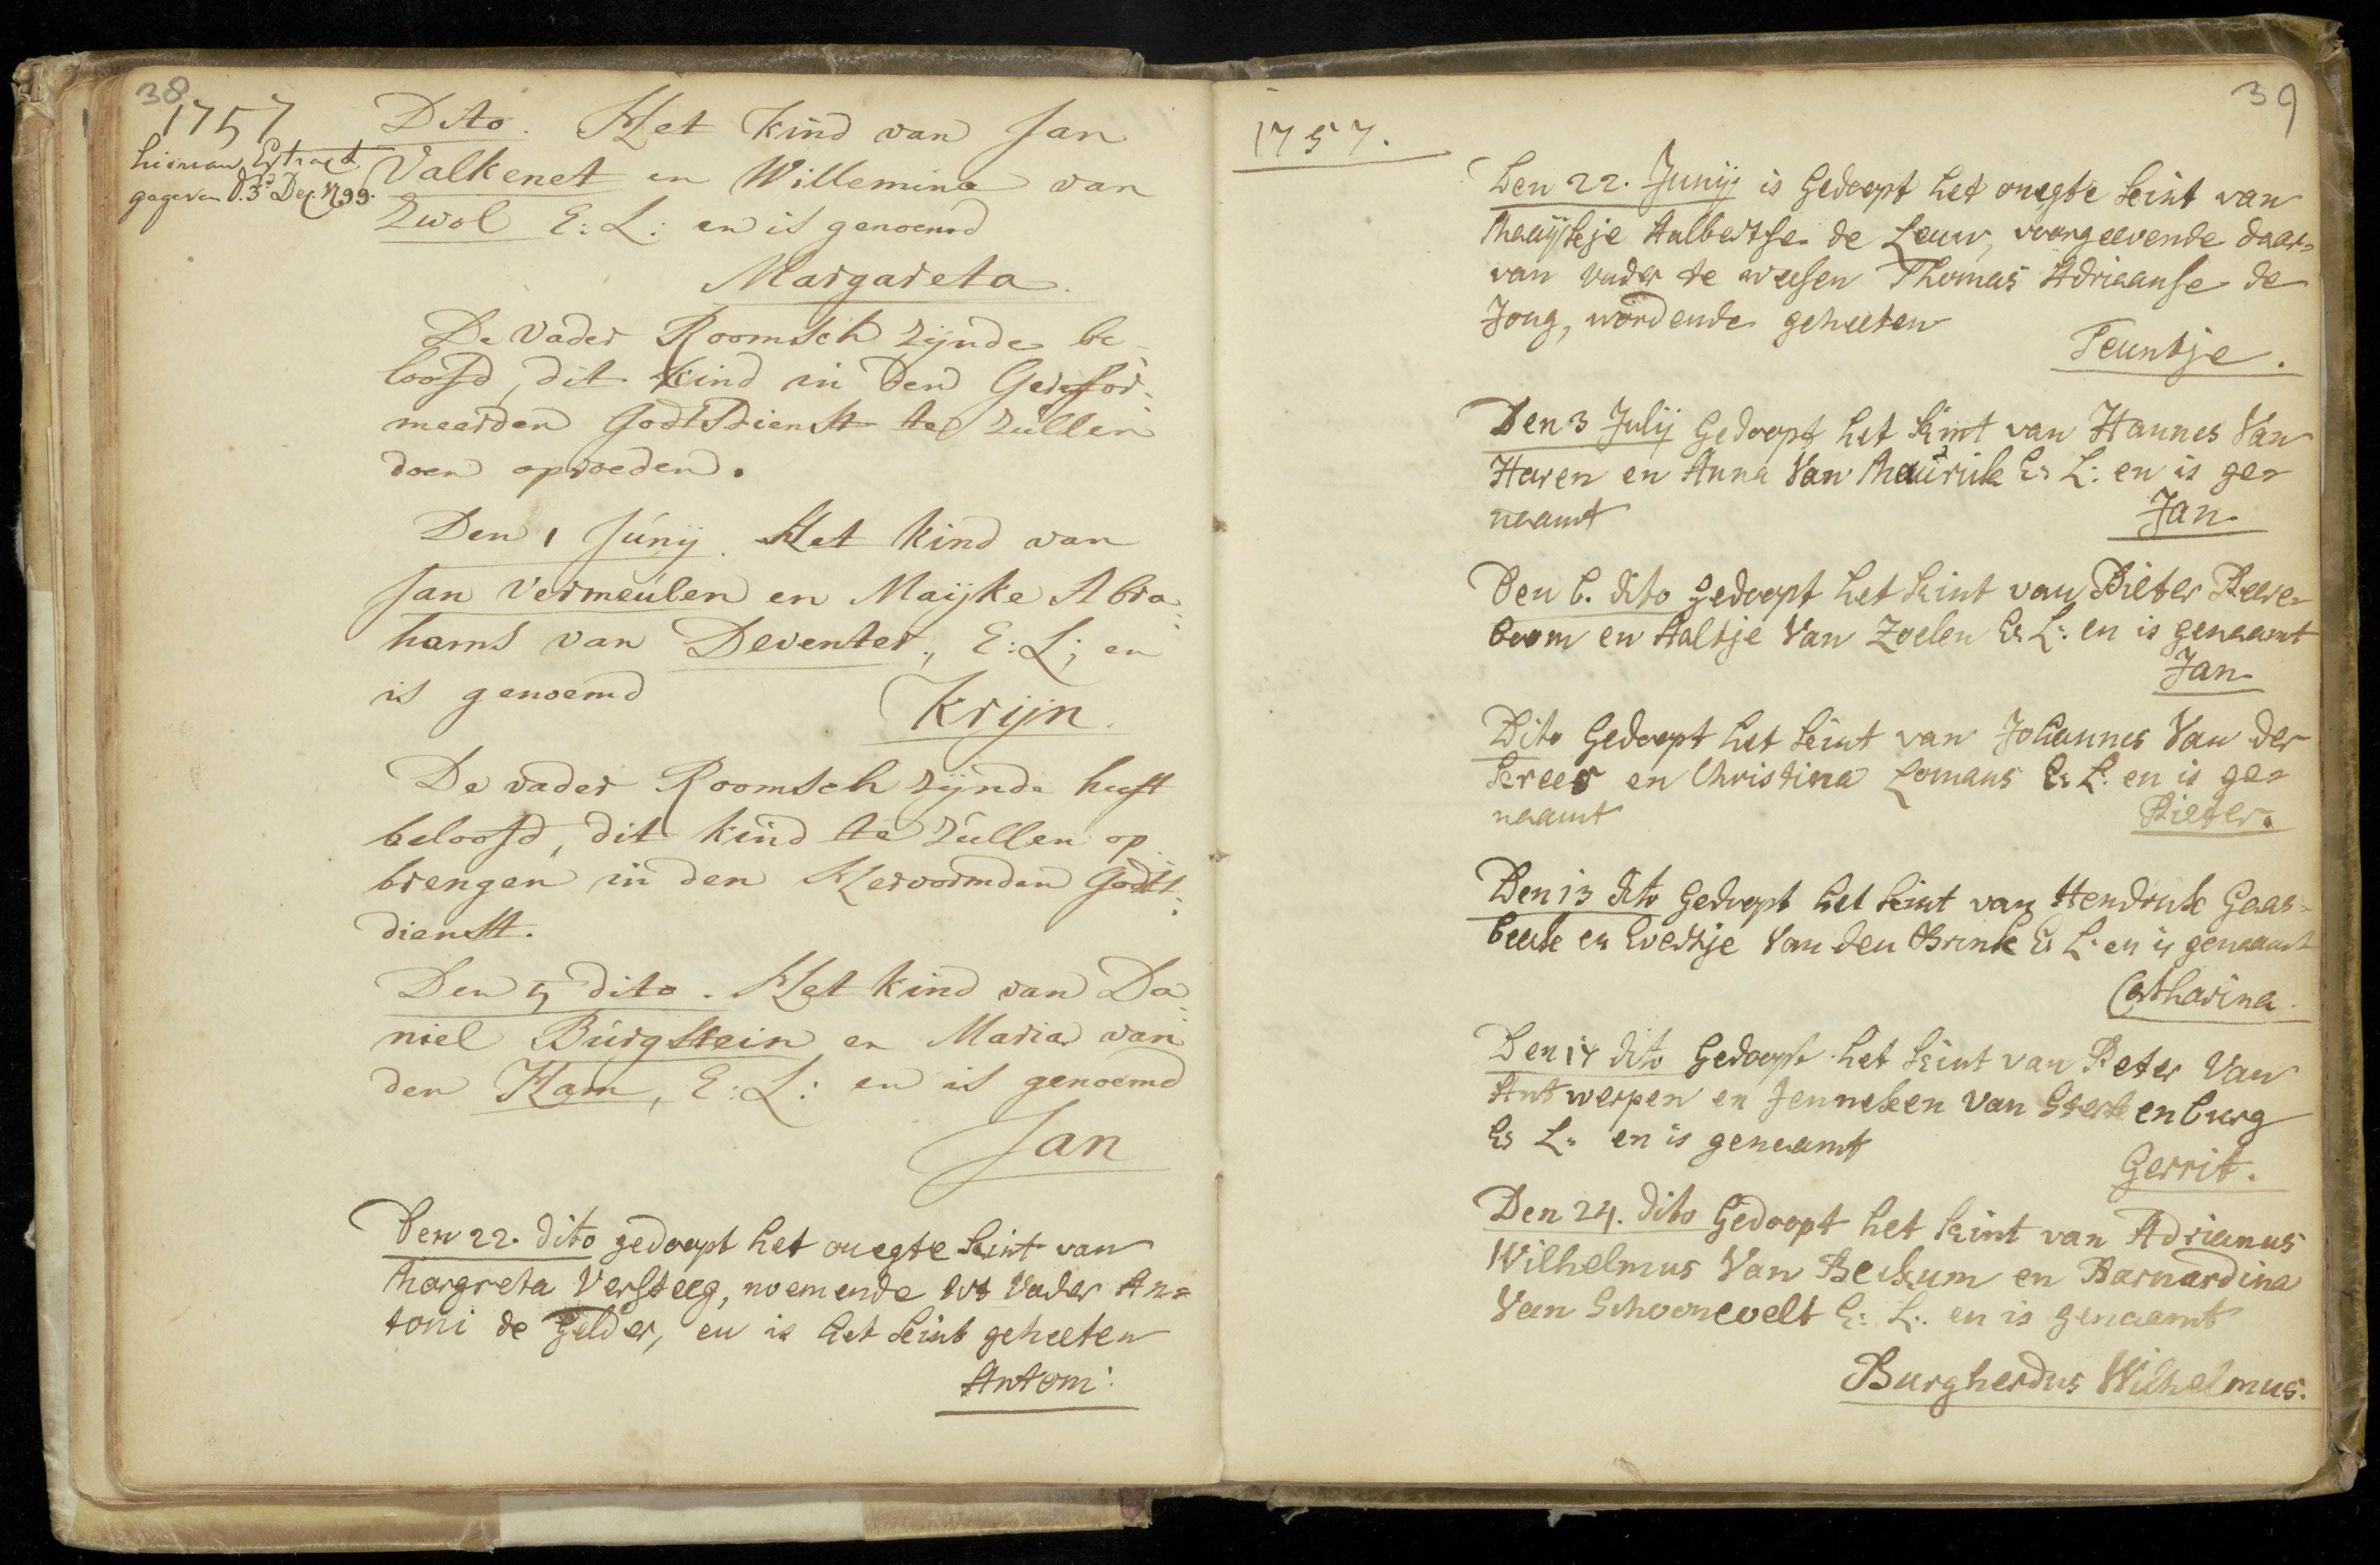 38
1757
hiervan Extract
gegeven d. 3e Dec. 1799.
Dito. Het kind van Jan
Valkenet en Willemina van
Zwol E: L: en is genoemd
Margareta.
De Vader Roomsch zijnde be-
loofd, dit kind in den Gerefor-
meerden Godtsdienst te zullen
doen opvoeden.
Den 1 Junij. Het kind van
Jan Vermeulen en Maijke Abra-
hams van Deventer, E: L; en
is genoemd Krijn.
De vader Roomsch zijnde heeft
beloofd, dit kind te zullen op
brengen in den Hervormden Godts-
dienst.
Den 5 dito. Het kind van Da-
niel Burgstein en Maria van
den Ham, E: L: en is genoemd
Jan
Den 22. dito gedoopt het onegte kint van
Margreta Versteeg, noemende tot Vader An=
toni de Gelder, en is het kint geheeten
Antoni.
39
1757.
Den 22. Junij is Gedoopt het onegte kint van
Maaijkje Aalbertse de Leeuw, voorgeevende daar=
van vader te weesen Thomas Adriaanse de
Jong, wordende geheeten
Teuntje.
Den 3 Julij Gedoopt het kint van Hannes Van
Haren en Anna Van Maurik E: L: en is ge=
naamt Jan
Den 6. dito Gedoopt het kint van Pieter Peere=
boom en Aaltje Van Zoelen E: L: en is genaamt
Jan
Dito Gedoopt het kint van Johannes Van der
Krees en Christina Lomans E: L: en is ge=
naamt Pieter.
Den 13 dito Gedoopt het kint van Hendrik Gaas=
beek en Evertje Van den Brink E: L: en is genaamt
Catharina.
Den 17 dito Gedoopt het kint van Peter Van
Antwerpen en Jenneken Van Sterkenburg
E: L: en is genaamt
Gerrit.
Den 24. dito Gedoopt het kint van Adrianus
Wilhelmus Van Beckum en Barnardina
Van Schoonevelt E: L: en is genaamt
Burgherdus Wilhelmus.